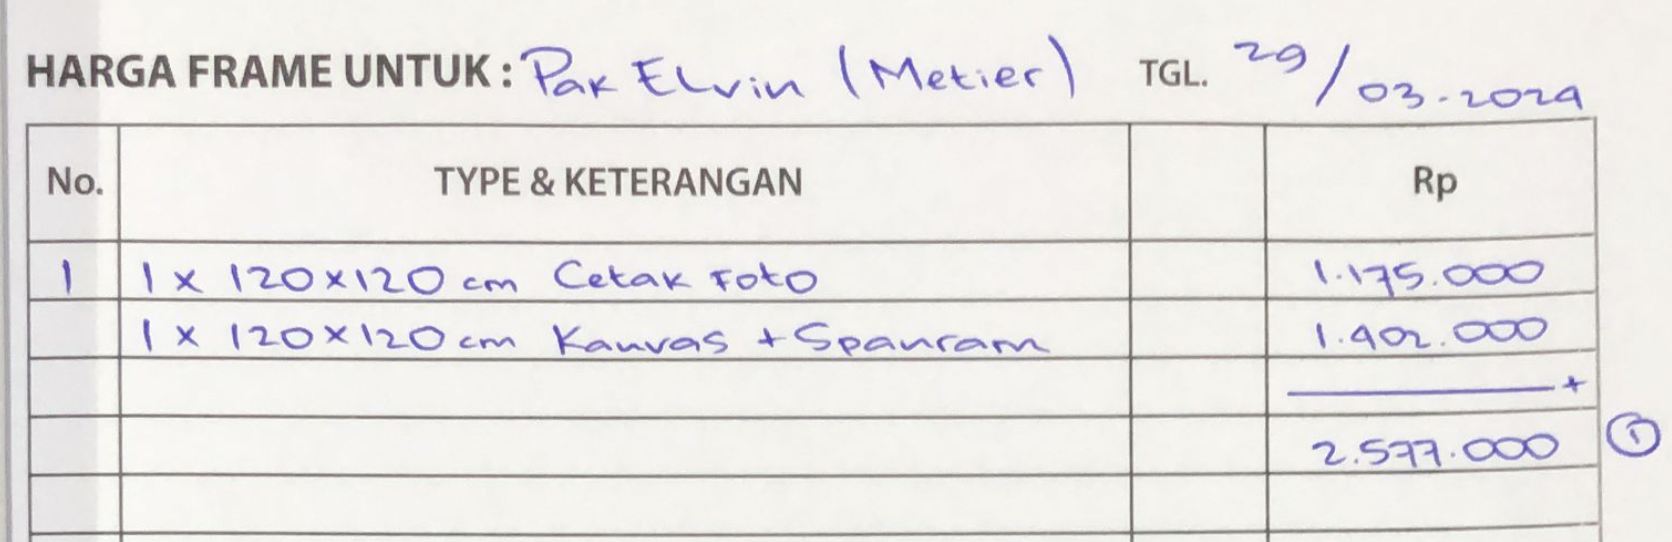 HARGA FRAME UNTUK : Pak Elvin (Metier) TGL. 29/03.2024
No. TYPE & KETERANGAN Rp
1 1 x 120x120 cm Cetak Foto 1.175.000
1 x 120x120 cm Kanvas + Spanram 1.402.000
+
2.577.000 ①